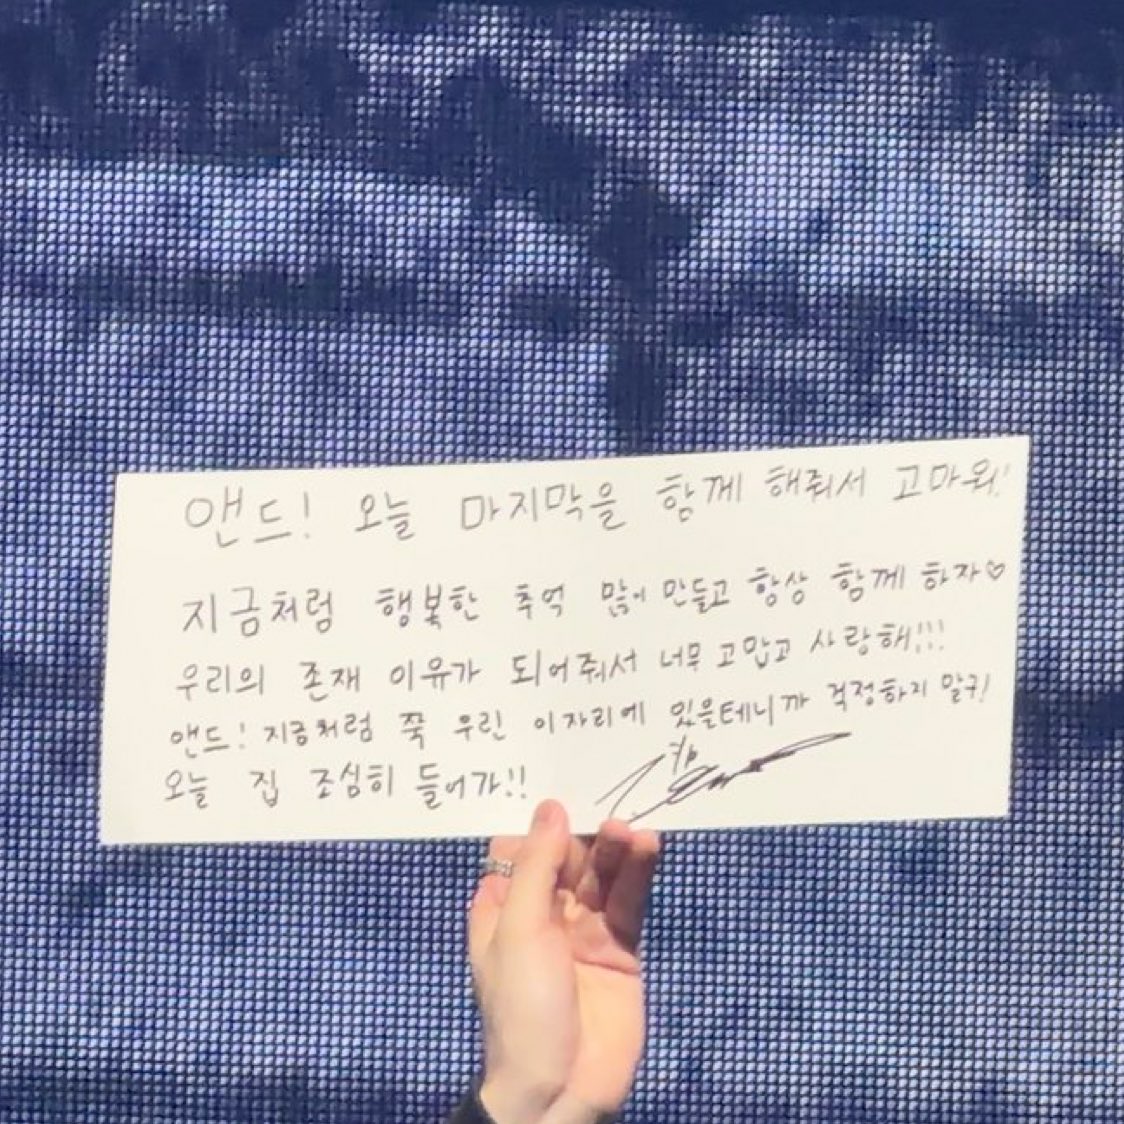 앤드! 오늘 마지막을 함께 해줘서 고마워!
지금처럼 행복한 추억 많이 만들고 항상 함께 하자♡
우리의 존재 이유가 되어줘서 너무 고맙고 사랑해!!!
앤드! 지금처럼 쭉 우린 이자리에 있을테니까 걱정하지 말구!
오늘 집 조심히 들어가!!